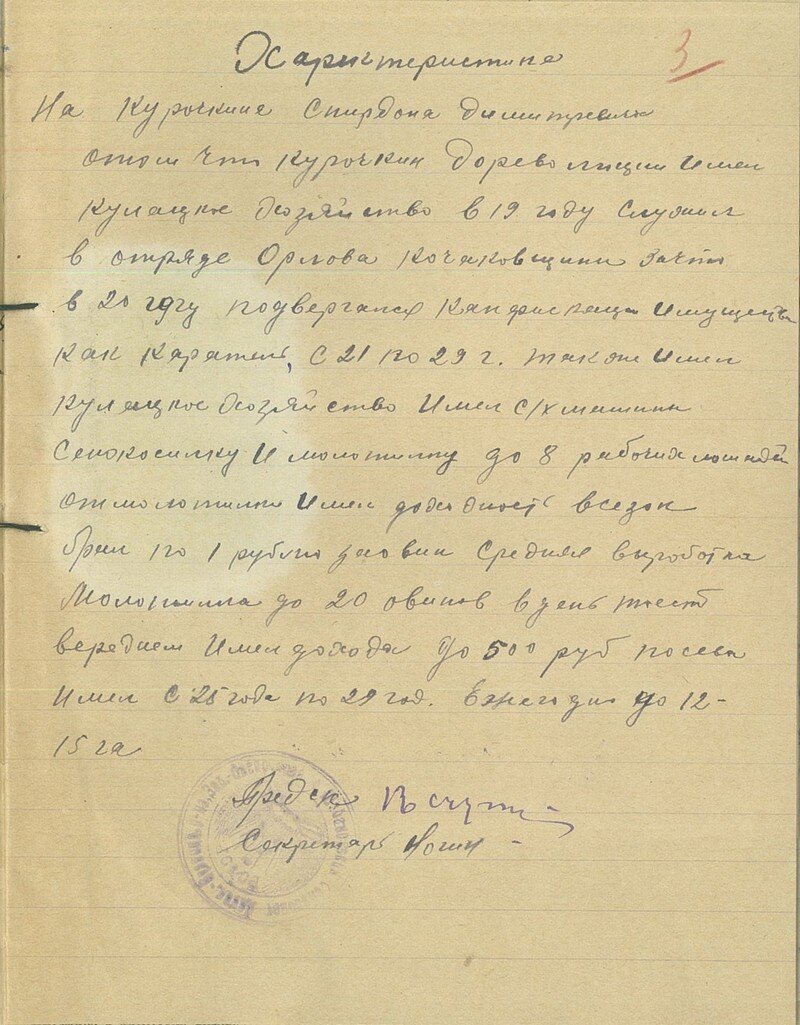 Характеристика
3
На Курочкина Спирдона Димитревича
отом что Курочкин Дореволюции Имел
Кулацкое Хозяйство в 19 году Служил
в отряде Орлова Кочаковщини Зачто
в 20 году подвергался Канфискации Имущества
как каратель, С 21 по 29 г. также Имел
кулацкое Хозяйство Имел с/х машини
Сенокосилку И молотилку до 8 рабочих лошадей
отмолотилки Имел доходность всезон
брал по 1 рублю заовин Средняя выроботка
Молотилка до 20 овинов вдень тоест
вереднем Имел дохода до 500 руб посева
Имел С 25 года по 29 год. Ежегодно до 12-
15 га
Предск
Секретарь